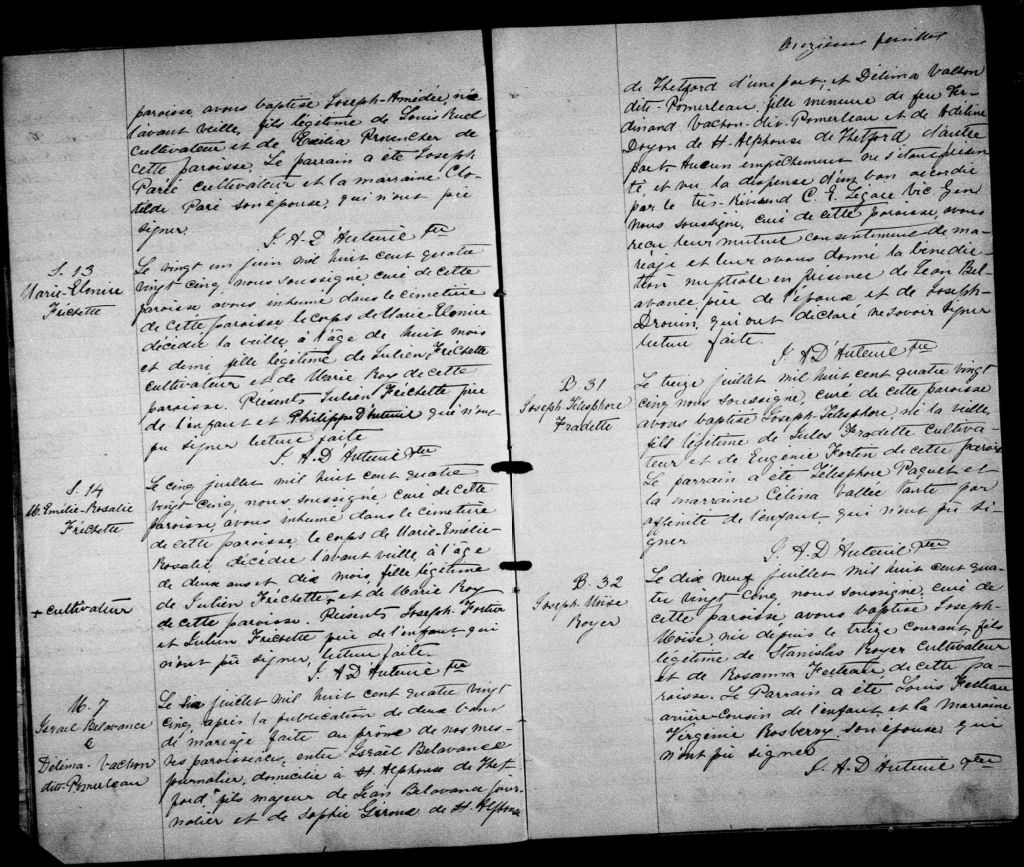 paroisse, avons baptisé Joseph-Amédée, né
l'avant veille, fils légitime de Louis Ruel
cultivateur et de Emilia Provencher de
cette paroisse. Le parrain a été Joseph
Paré cultivateur et la marraine Clo-
tilde Paré son épouse, qui n'ont pû
signer.
J. A. D'Auteuil Ptre
S. 13
Marie-Elonire
Fréchette
Le vingt un juin mil huit cent quatre
vingt-cinq, nous soussigné curé de cette
paroisse avons inhumé dans le cimetière
de cette paroisse le corps de Marie-Elonire
décédée la veille, à l'âge de huit mois
et demi, fille légitime de Julien Fréchette
cultivateur et de Marie Roy de cette
paroisse. Présents Julien Fréchette père
de l'enfant et Philippe D'Auteuil qui n'ont
pu signer lecture faite
J. A. D'Auteuil Ptre
S. 14
M. Emélie-Rosalie
Fréchette
Le cinq juillet mil huit cent quatre
vingt cinq, nous soussigné curé de cette
paroisse, avons inhumé dans le cimetière
de cette paroisse, le corps de Marie-Emélie-
Rosalie, décédée l'avant veille, à l'âge
de deux ans et dix mois, fille légitime
de Julien Fréchette + et de Marie Roy
de cette paroisse. Présents Joseph Fortin
et Julien Fréchette père de l'enfant qui
n'ont pû signer, lecture faite.
J. A D'Auteuil Ptre
+ cultivateur
M. 7
Israël Belavance
&
Délima-Vachon
dit-Pomerleau
Le six juillet mil huit cent quatre vingt
cinq, après la publication de deux bans
de mariage faite au prône de nos mes-
ses paroissiales, entre Israël Belavance
journalier, domicilié à St. Alphonse de Thet-
ford, fils majeur de Jean Belavance jour-
nalier et de Sophie Giroux de St. Alphonse
Onzième feuillet
de Thetford d'une part; et Délima Vachon
dit-Pomerleau, fille mineure de feu Fer-
dinand Vachon-dit-Pomerleau et de Adeline
Doyon de St. Alphonse de Thetford d'autre
part. Aucun empêchement ne s'étant présen
té et vu la dispense d'un ban accordée
par le très-Révérend C. E. Légaré Vic. Gen
nous soussigné, curé de cette paroisse, avons
reçu leur mutuel consentement de ma-
riage et leur avons donné la bénédic-
tion nuptiale en présence de Jean Bel-
avance père de l'époux et de Joseph-
Drouin, qui ont déclaré ne savoir signer
lecture faite.
J. A D'Auteuil Ptre
B. 31
Joseph-Télesphore
Fradette
Le treize juillet mil huit cent quatre vingt
cinq nous soussigné, curé de cette paroisse
avons baptisé Joseph-Télesphore, né la veille,
fils légitime de Jules Fradette cultiva-
teur et de Eugénie Fortin de cette paroisse
Le parrain a été Télesphore Paquet et
la marraine Célina Vallée tante par
affinité de l'enfant qui n'ont pû si-
gner
J. A. D'Auteuil Ptre
B. 32
Joseph-Moïse
Royer
Le dix neuf juillet mil huit cent qua-
tre vingt cinq, nous soussigné, curé de
cette paroisse, avons baptisé Joseph-
Moïse, né depuis le treize courant, fils
légitime de Stanislas Royer cultivateur
et de Rosanna Fecteau, de cette pa-
roisse. Le Parrain a été Louis Fecteau
arrière-cousin de l'enfant et la Marraine
Virgenie Rosberry son épouse, qui
n'ont pû signer
J. A. D'Auteuil Ptre